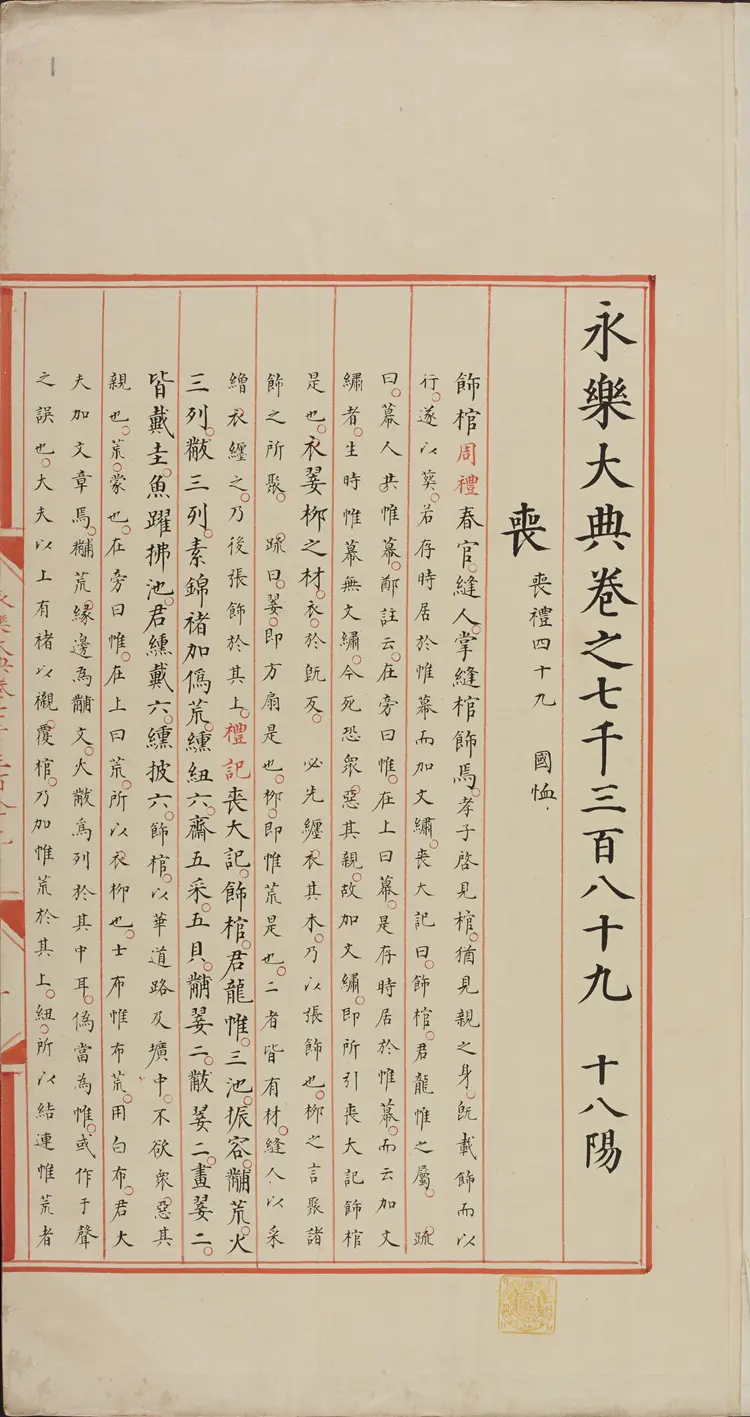 永樂大典卷之七千三百八十九 十八陽
喪 喪禮四十九 國恤
飾棺周禮春官。縫人。掌縫棺飾焉。孝子啓見棺。猶見親之身。既載飾而以
行。遂以葬。若存時居於惟幕而加文繡。喪大記曰。飾棺。君龍惟之屬。 疏
曰。幕人共惟幕。鄭註云。在旁曰惟。在上曰幕。是存時居於惟幕。而云加文
繡者。生時惟幕無文繡。今死恐衆惡其親。故加文繡。即所引喪大記飾棺
是也。衣翣柳之材。衣。於既反。 必先纏衣其木。乃以張飾也。柳之言聚諸
飾之所聚。 疏曰。翣。即方扇是也。柳。即惟荒是也。二者皆有材。縫人以采
繒衣纏之。乃後張飾於其上。禮記喪大記。飾棺。君龍惟。三池。振容。黼荒。火
三列。黻三列。素錦褚加僞荒。纁紐六。齋五采。五貝。黼翣二。黻翣二。畫翣二。
皆戴圭。魚躍拂池。君纁戴六。纁披六。飾棺。以華道路及壙中。不欲衆惡其
親也。荒。蒙也。在旁曰惟。在上曰荒。所以衣柳也。士布惟布荒。用白布。君大
夫加文章焉。黼荒。緣邊為黼文。火黻為列於其中耳。僞當為惟。或作于聲
之誤也。大夫以上有褚以襯覆棺。乃加惟荒於其上。紐。所以結連惟荒者